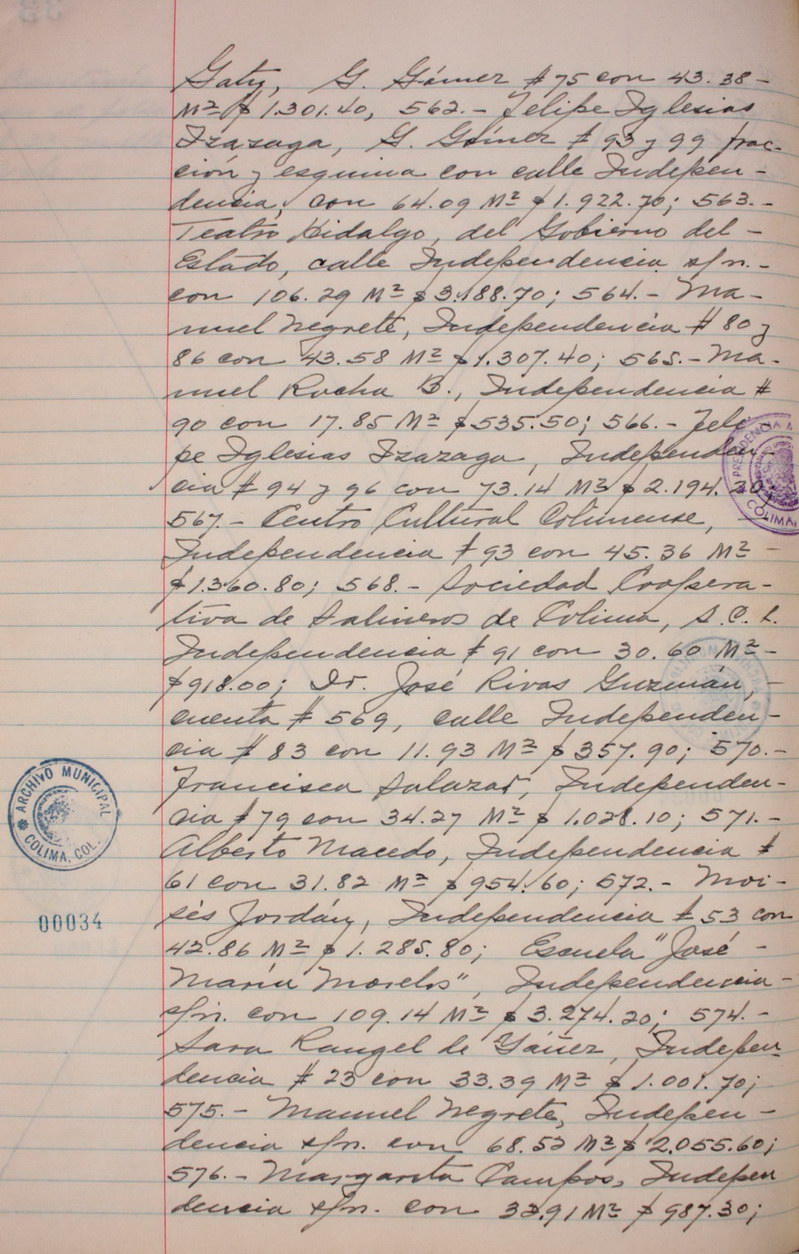 Gaty, G. Gómez # 75 con 43.38-
M² $ 1.301.40, 562.- Felipe Iglesias
Izazaga, G. Gómez # 93 y 99 frac-
ción y esquina con calle Indepen-
dencia, con 64.09 M² $ 1.922.70; 563.-
Teatro Hidalgo, del Gobierno del -
Estado, calle Independencia s/n.-
con 106.29 M² $ 3.188.70; 564.- Ma-
nuel Negrete, Independencia # 80 y
86 con 43.58 M² $ 1.307.40; 565.- Ma-
nuel Rocha B., Independencia #
90 con 17.85 M² $ 535.50; 566.- Feli-
pe Iglesias Izazaga, Independen-
cia # 94 y 96 con 73.14 M² $ 2.194.20;
567.- Centro Cultural Colimense,
Independencia # 93 con 45.36 M² -
$ 1.360.80; 568.- Sociedad Coopera-
tiva de Salineros de Colima, S.C.L.
Independencia # 91 con 30.60 M² -
$ 918.00; Dr. José Rivas Guzmán, -
cuenta # 569, calle Independen-
cia # 83 con 11.93 M² $ 357.90; 570.-
Francisca Salazar, Independen-
cia # 79 con 34.27 M² $ 1.028.10; 571.-
Alberto Macedo, Independencia #
61 con 31.82 M² $ 954.60; 572.- Moi-
sés Jordán, Independencia # 53 con
42.86 M² $ 1.285.80; Escuela "José -
María Morelos", Independencia -
s/n. con 109.14 M² $ 3.274.20; 574.-
Sara Rangel de Yáñez, Indepen
dencia # 23 con 33.39 M² $ 1.001.70;
575.- Manuel Negrete, Indepen-
dencia s/n. con 68.52 M² $ 2.055.60;
576.- Margarita Campos, Indepen
dencia s/n. con 32.91 M² $ 987.30;
PRESIDENCIA M
COLIMA,
ARCHIVO MUNICIPAL
COLIMA, COL.
00034